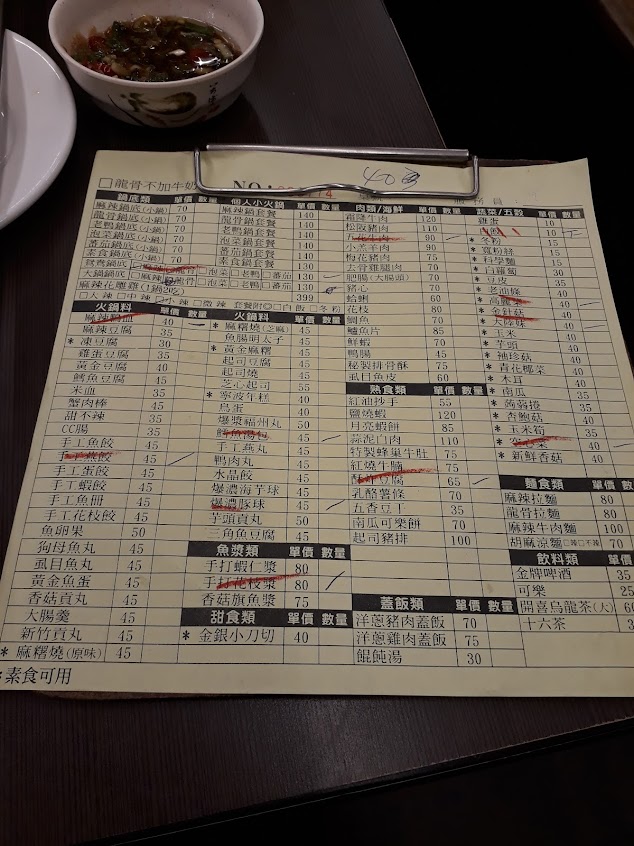 408
□龍骨不加牛奶 NO.: 4
鍋底類 單價 數量
麻辣鍋底(小鍋) 70
龍骨鍋底(小鍋) 70
老鴨鍋底(小鍋) 70
泡菜鍋底(小鍋) 70
蕃茄鍋底(小鍋) 70
素食鍋底(小鍋) 70
鴛鴦鍋底 □泡菜□老鴨□蕃茄 130
大鍋鍋底□麻辣 龍骨□泡菜□老鴨□蕃茄 130
麻辣花雕雞(1鍋2吃) 399
□大辣□中辣□小辣□微辣 套餐附◎□白飯□冬粉
個人小火鍋 單價 數量
麻辣鍋套餐 140
龍骨鍋套餐 140
老鴨鍋套餐 140
泡菜鍋套餐 140
蕃茄鍋套餐 140
素食鍋套餐 130
火鍋料 單價 數量
麻辣鴨血 40
麻辣豆腐 35
* 凍豆腐 30
雞蛋豆腐 35
黃金豆腐 40
鱈魚豆腐 45
米血 35
蟹肉棒 45
甜不辣 35
CC腸 35
手工魚餃 45
手工燕餃 45
手工蛋餃 45
手工蝦餃 45
手工魚冊 45
手工花枝餃 45
魚卵果 50
狗母魚丸 45
虱目魚丸 45
黃金魚蛋 45
香菇貢丸 45
大腸羹 45
新竹貢丸 45
* 麻糬燒(原味) 45
*素食可用
火鍋料 單價 數量
* 麻糬燒(芝麻) 45
魚腸明太子 45
* 黃金麻糬 45
起司豆腐 45
起司燒 45
芝心起司 55
* 寧波年糕 40
鳥蛋 40
爆漿福州丸 50
鱈魚湯包 45
手工燕丸 45
鴨肉丸 45
水晶餃 45
爆濃海芋球 45
爆濃豚球 45
芋頭貢丸 50
三角魚豆腐 45
魚漿類 單價 數量
手打蝦仁漿 80
手打花枝漿 80
香菇旗魚漿 75
甜食類 單價 數量
* 金銀小刀切 40
肉類/海鮮 單價 數量
霜降牛肉 120
松阪豬肉 110
五花牛肉 90
小羔羊肉 90
梅花豬肉 75
去骨雞腿肉 70
肥腸(大腸頭) 70
豬心 70
蛤蜊 60
花枝 80
鯛魚 70
鱸魚片 85
鮮蝦 70
鴨腸 45
秘製排骨酥 75
虱目魚皮 60
熟食類 單價 數量
紅油抄手 55
鹽燒蝦 120
月亮蝦餅 85
蒜泥白肉 110
特製蜂巢牛肚 75
紅燒牛腩 75
酥炸豆腐 65
乳酪薯條 70
五香豆丁 35
南瓜可樂餅 70
起司豬排 100
蓋飯類 單價 數量
洋蔥豬肉蓋飯 70
洋蔥雞肉蓋飯 75
餛飩湯 30
蔬菜/五穀 單價 數量
雞蛋 10
10
* 冬粉 15
* 寬粉絲 15
* 科學麵 15
* 白蘿蔔 30
* 豆皮 35
* 老油條 40
* 高麗菜 40
* 金針菇 40
* 大陸妹 40
* 玉米 40
* 芋頭 40
* 袖珍菇 40
* 青花椰菜 40
* 木耳 40
* 南瓜 40
* 蒟蒻捲 35
* 杏鮑菇 40
* 玉米筍 40
40
* 新鮮香菇 40
麵食類 單價 數量
麻辣拉麵 80
龍骨拉麵 80
麻辣牛肉麵 100
胡麻涼麵□辣□不辣 70
飲料類 單價
金牌啤酒 35
可樂 25
開喜烏龍茶(大) 60
十六茶 3